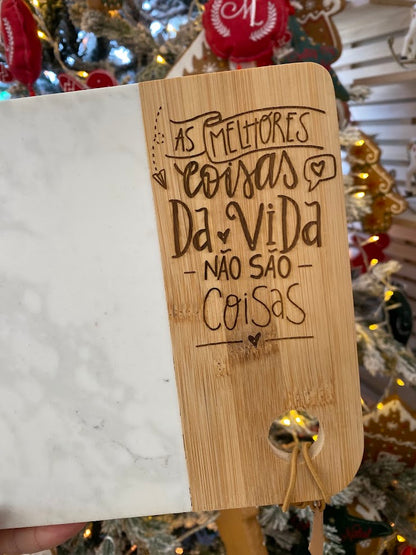 M
AS MELHORES
coisas
Da ViDa
NÃO SÃO
COiSaS